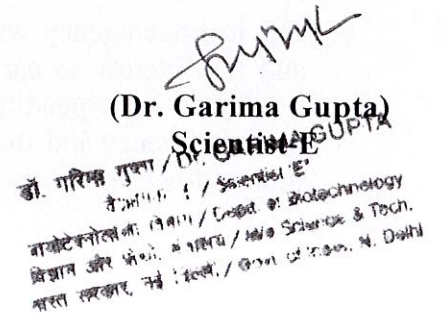 (Dr. Garima Gupta)
Scientist-E
डॉ. गरिमा गुप्ता / Dr. GARIMA GUPTA
/ Scientist 'E'
विभाग / Deptt. of Biotechnology
विज्ञान और / M/o Science & Tech.
भारत सरकार, नई दिल्ली / Govt. of India, N. Delhi